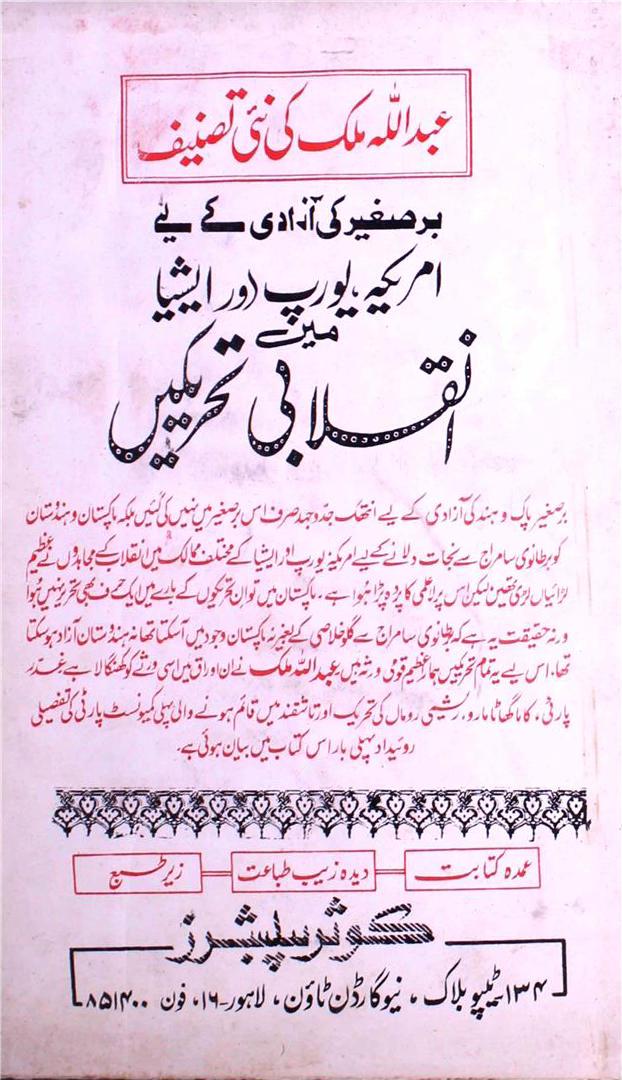 عبد اللہ ملک کی نئی تصنیف
برصغیر کی آزادی کے لیے
امریکہ، یورپ اور ایشیا
میں
انقلابی تحریکیں
برصغیر پاک و ہند کی آزادی کے لیے انتھک جدوجہد صرف اس برصغیر میں نہیں کی گئیں بلکہ پاکستان و ہندوستان
کو برطانوی سامراج سے نجات دلانے کے لیے امریکہ یورپ اور ایشیا کے مختلف ممالک میں انقلاب کے مجاہدوں نے عظیم
لڑائیاں لڑی تھیں لیکن اس پر لاعلمی کا پردہ پڑا ہوا ہے۔ پاکستان میں تو ان تحریکوں کے بارے میں ایک حرف بھی تحریر نہیں ہوا
ورنہ حقیقت یہ ہے کہ برطانوی سامراج سے گلو خلاصی کے بغیر نہ پاکستان وجود میں آسکتا تھا نہ ہندوستان آزاد ہو سکتا
تھا۔ اس لیے یہ تمام تحریکیں ہمارا عظیم قومی ورثہ ہیں عبد اللہ ملک نے ان اوراق میں اسی ورثے کو کھنگالا ہے غدر
پارٹی، کاما گاٹا مارو، ریشمی رومال کی تحریک اور تاشقند میں قائم ہونے والی پہلی کمیونسٹ پارٹی کی تفصیلی
روئیداد پہلی بار اس کتاب میں بیان ہوئی ہے۔
عمدہ کتابت دیدہ زیب طباعت زیر طبع
کوثر پبلشرز
۱۳۴۔ ٹیپو بلاک، نیو گارڈن ٹاؤن، لاہور۔۱۶، فون ۸۵۱۴۰۰